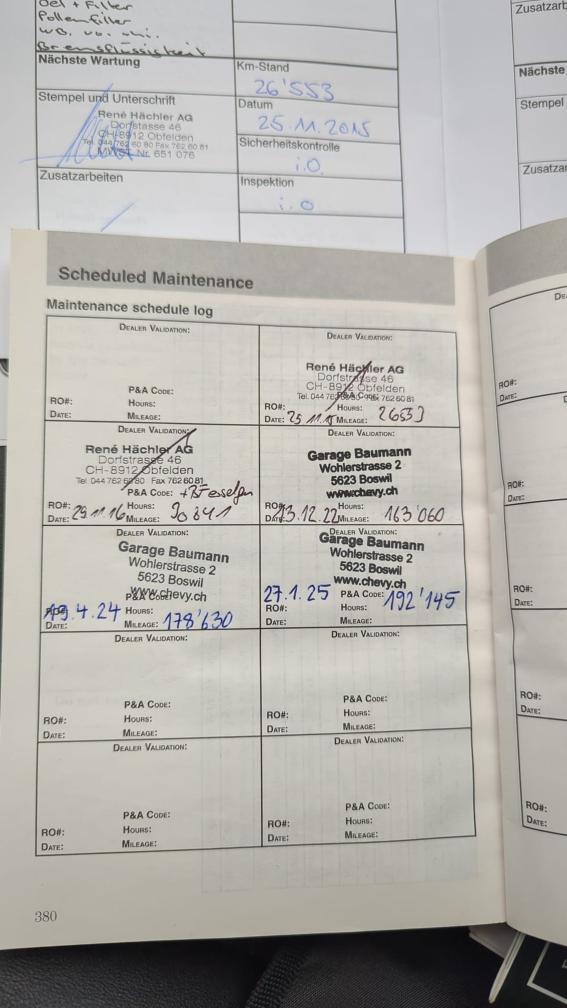 Oel + Filter
Pollenfilter
Bremsflüssigkeit
Nächste Wartung
Km-Stand
26'553
Stempel und Unterschrift
René Hächler AG
Dorfstrasse 46
CH-8912 Obfelden
Tel. 044 762 60 80 Fax 762 60 81
MWST Nr. 651 076
Datum
25.11.2015
Sicherheitskontrolle
i.O.
Zusatzarbeiten
Inspektion
i.O
Zusatzarb
Nächste
Stempel
Zusatzar
Scheduled Maintenance
Maintenance schedule log
Dealer Validation:
P&A Code:
RO#:
Hours:
Date:
Mileage:
Dealer Validation:
René Hächler AG
Dorfstrasse 46
CH-8912 Obfelden
Tel. 044 762 60 80 Fax 762 60 81
P&A Code:
RO#:
Hours:
Date: 25 11.15 Mileage: 26553
Dealer Validation:
René Hächler AG
Dorfstrasse 46
CH-8912 Obfelden
Tel. 044 762 60 80 Fax 762 60 81
P&A Code:
RO#:
Hours:
Date: 29 11 16 Mileage: 30841
Garage Baumann
Wohlerstrasse 2
5623 Boswil
www.chevy.ch
RO#:
Hours:
Date: 13.12.22 Mileage: 163'060
Dealer Validation:
Garage Baumann
Wohlerstrasse 2
5623 Boswil
www.chevy.ch
P&A Code:
RO#:
19.4.24 Hours:
Date:
Mileage: 178'630
Dealer Validation:
Garage Baumann
Wohlerstrasse 2
5623 Boswil
www.chevy.ch
27.1.25 P&A Code: 192'145
RO#:
Hours:
Date:
Mileage:
Dealer Validation:
P&A Code:
RO#:
Hours:
Date:
Mileage:
Dealer Validation:
P&A Code:
RO#:
Hours:
Date:
Mileage:
Dealer Validation:
P&A Code:
RO#:
Hours:
Date:
Mileage:
Dealer Validation:
P&A Code:
RO#:
Hours:
Date:
Mileage:
380
De
RO#:
Date:
RO#:
Date:
RO#:
Date:
RO#:
Date:
RO#:
Date: